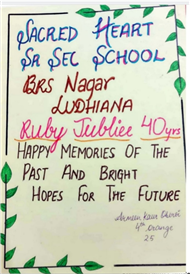 SACRED HEART
SR SEC SCHOOL
BRS Nagar
LUDHIANA
Ruby Jubliee 40yrs
HAPPY MEMORIES OF THE
PAST AND BRIGHT
HOPES FOR THE FUTURE
Kaur
4th Orange
25